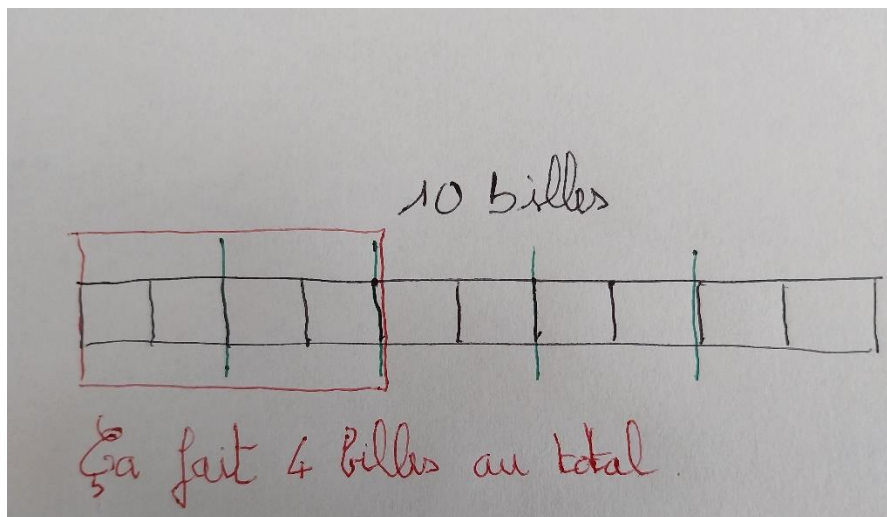 10 billes
Ça fait 4 billes au total.